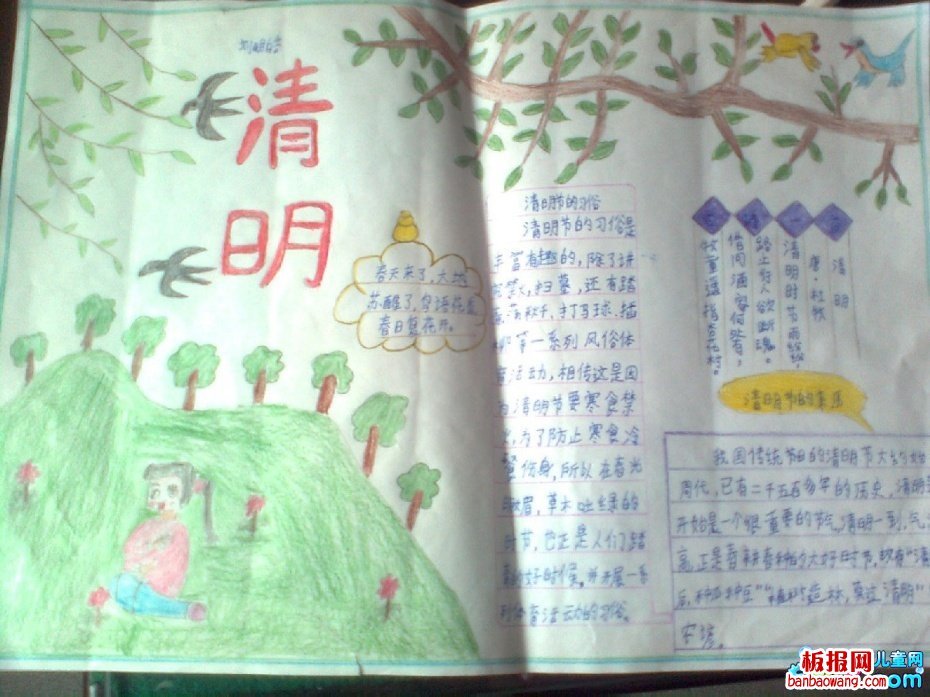 清
明
春天来了,大地
苏醒了,鸟语花香,
春日复花开。
清明节的习俗
清明节的习俗是
丰富有趣的,除了讲
究禁火,扫墓,还有踏
荡秋千,打马球,插
等一系列风俗体
育活动,相传这是因
为清明节要寒食禁
,为了防止寒食冷
餐伤身,所以在春光
眉,草木吐绿的
时节,也正是人们踏
好时候,并开展一系
列体育活动的习俗。
古诗一首
清明
唐·杜牧
清明时节雨纷纷,
路上行人欲断魂。
借问酒家何处有,
牧童遥指杏花村。
清明节的来历
我国传统节日的清明节大约始
周代,已有二千五百多年的历史,清明
开始是一个很重要的节气,清明一到,气
高,正是春耕春种的大好时节,故有“清
后,种瓜种豆”“植树造林,莫过清明”
农谚。
板报网 儿童网
banbaowang.com